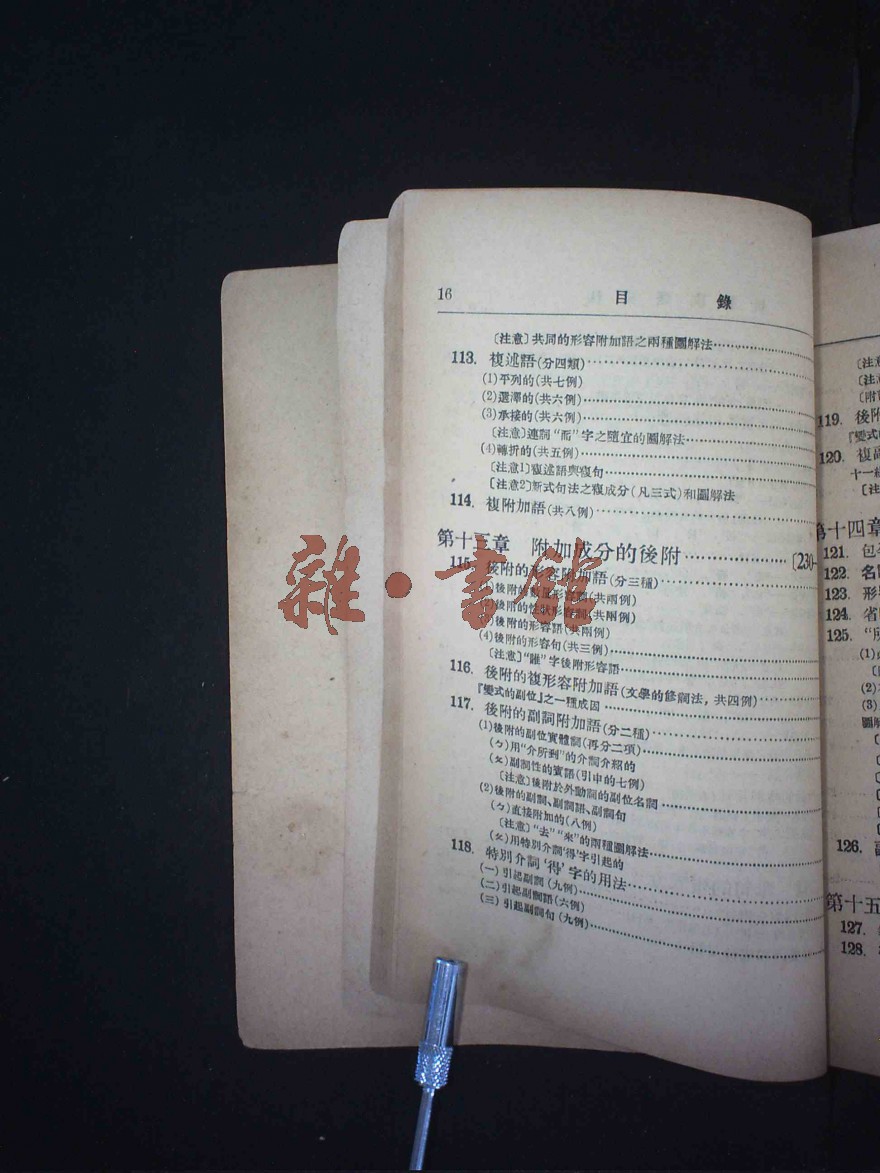 16 目錄
〔注意〕共同的形容附加語之兩種圖解法
113. 複述語(分四類)
(1)平列的(共七例)
(2)選擇的(共六例)
(3)承接的(共六例)
〔注意〕連詞“而”字之隨宜的圖解法
(4)轉折的(共五例)
〔注意1〕複述語與複句
〔注意2〕新式句法之複成分(凡三式)和圖解法
114. 複附加語(共八例)
第十三章 附加成分的後附 〔230—
115. 後附的形容附加語(分三種)
後附的數量形容詞(共兩例)
後附的性狀形容詞(共兩例)
後附的形容語(共兩例)
(4)後附的形容句(共三例)
〔注意〕“誰”字後附形容語
116. 後附的複形容附加語(文學的修詞法,共四例)
『變式的副位』之一種成因
117. 後附的副詞附加語(分二種)
(1)後附的副位實體詞(再分二項)
(ㄅ)用“介所到”的介詞介紹的
(ㄆ)副詞性的賓語(引申的七例)
〔注意〕後附於外動詞的副位名詞
(2)後附的副詞、副詞語、副詞句
(ㄅ)直接附加的(八例)
〔注意〕“去”“來”的兩種圖解法
(ㄆ)用特別介詞‘得’字引起的
118. 特別介詞‘得’字的用法
(一)引起副詞(九例)
(二)引起副詞語(六例)
(三)引起副詞句(九例)
〔注意
〔注意
119. 後附
120. 複副
十一
〔注
第十四章
121. 包
122. 名
123. 形
124. 省
125.
(1)
(2)
(3)
圖解
126. 副
第十五
127.
128.
雜·書館